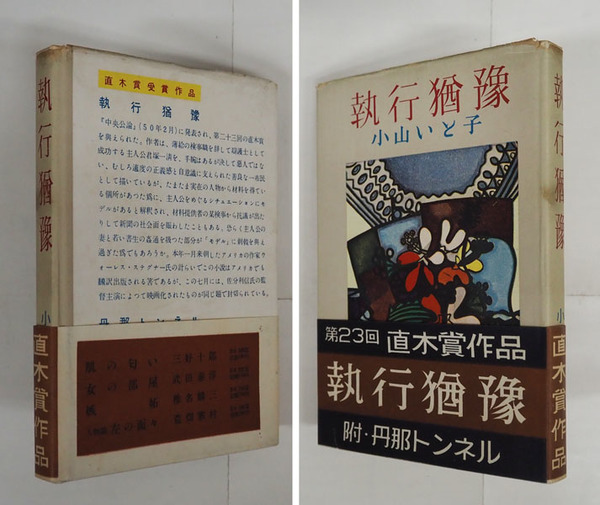 執行猶豫
小
直木賞作品
直木賞受賞作品
執行猶豫
『中央公論』(50年2月)に発表され、第二十三回の直木賞
を與えられた。作者は、薄給の検事職を辞して辯護士として
成功する主人公君塚一済を、手腕はあるが決して悪人ではな
い、むしろ適度の正義感と自意識に支えられた善良な一市民
として描いているが、たまたま実在の人物から材料を得てい
る個所があつた爲に、主人公をめぐるシチュエーションにモ
デルがあると解釈され、材料提供者の某検事から抗議が出た
りして新聞の社会面を賑わしたこともある。恐らく主人公の
妻と若い書生の姦通を扱つた部分が「モデル」に刺戟を與え
過ぎた爲でもあろうか。本年一月来朝したアメリカの作家ウ
ォーレス・ステグナー氏の計らいでこの小説はアメリカでも
飜訳出版される筈であるが、この七月には、佐分利信氏の監
督主演によつて映画化されたものが同じ題で封切られている。
丹那トンネル
執行猶豫
小山いと子
第23回 直木賞作品
執行猶豫
附・丹那トンネル
執行猶豫
小
直木賞作品